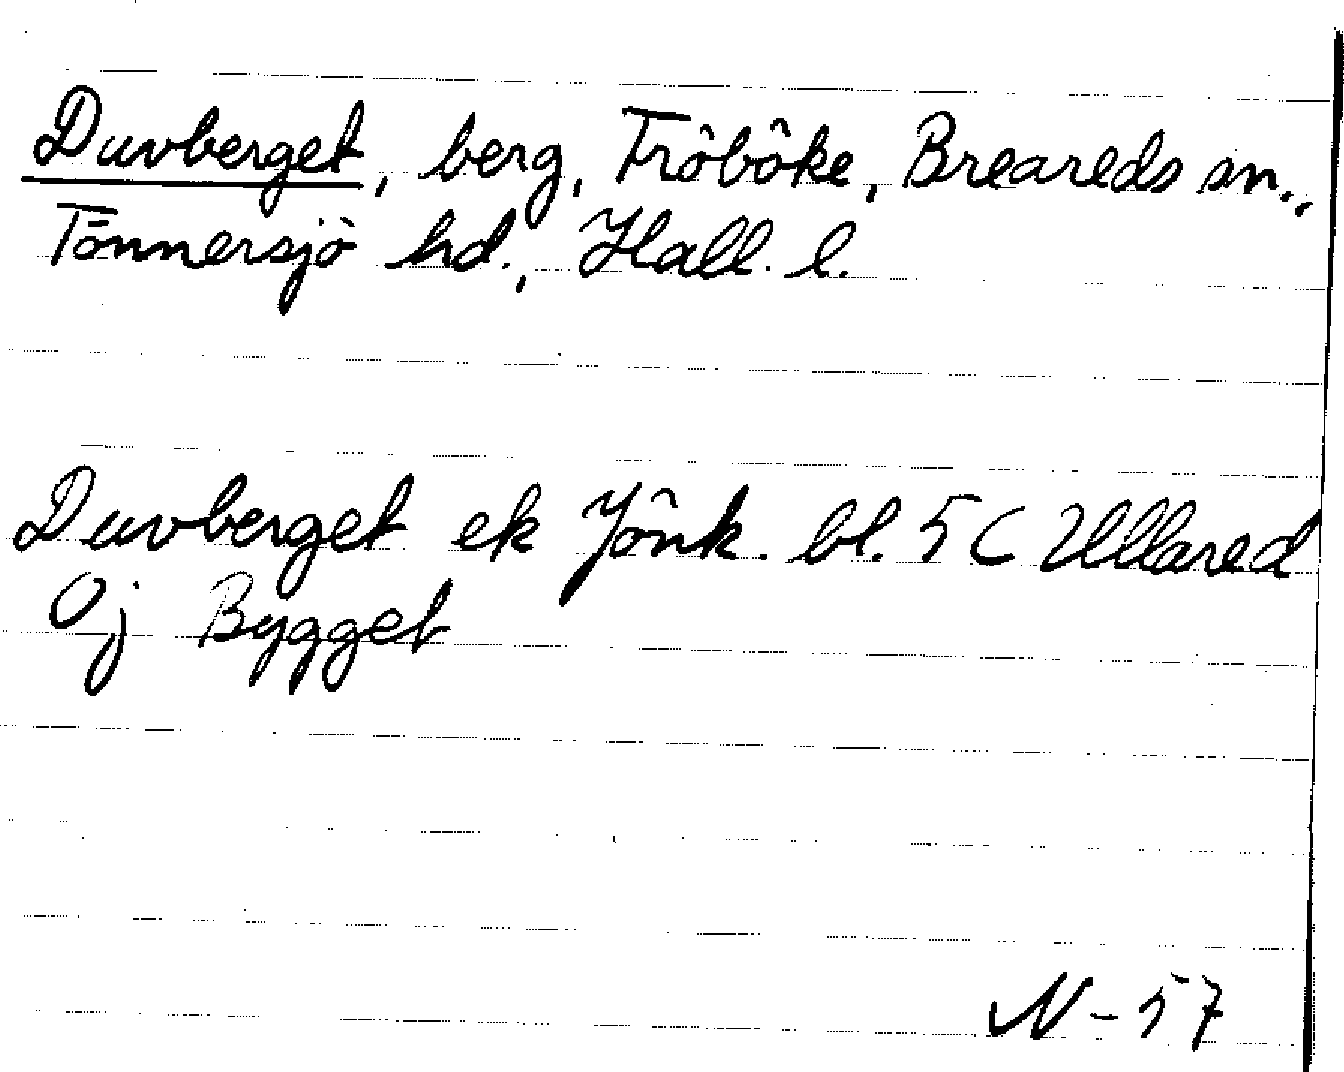 Duvberget, berg, Tröböke, Breareds sn.,
Tönnersjö hd., Hall. l.
Duvberget ek Jönk. bl. 5C Ullared
0j Bygget
N-57